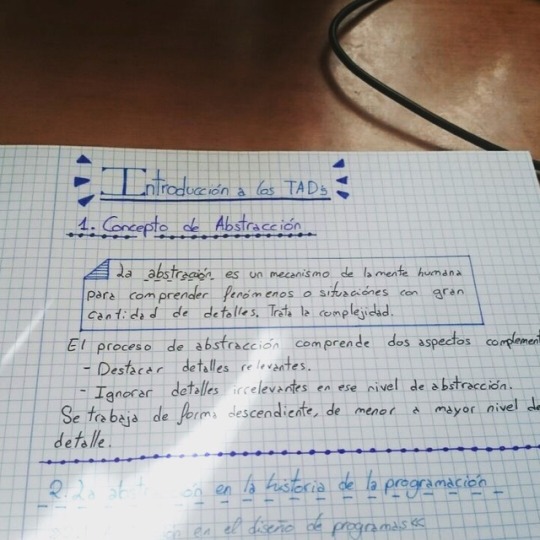 Introducción a los TADs
1. Concepto de Abstracción
La abstracción es un mecanismo de la mente humana
para comprender fenómenos o situaciónes con gran
cantidad de detalles. Trata la complejidad.
El proceso de abstracción comprende dos aspectos complement
- Destacar detalles relevantes.
- Ignorar detalles irrelevantes en ese nivel de abstracción.
Se trabaja de forma descendiente, de menor a mayor nivel de
detalle.
2. La en la historia de la programación
en el diseño de programas